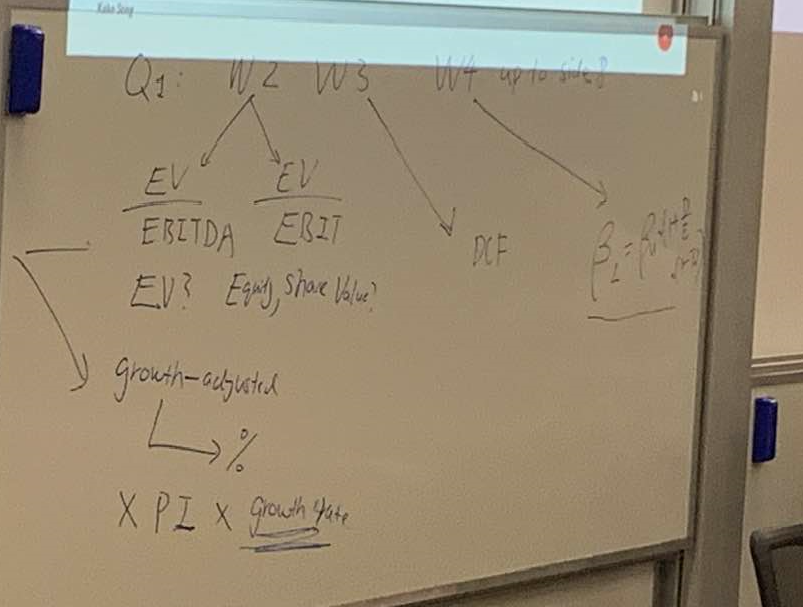 Q1: W2 W3 W4 up to slide 8
EV EV
EBITDA EBIT
DCF
EV? Equity, Share Value?
growth-adjusted
%
X PI X growth rate